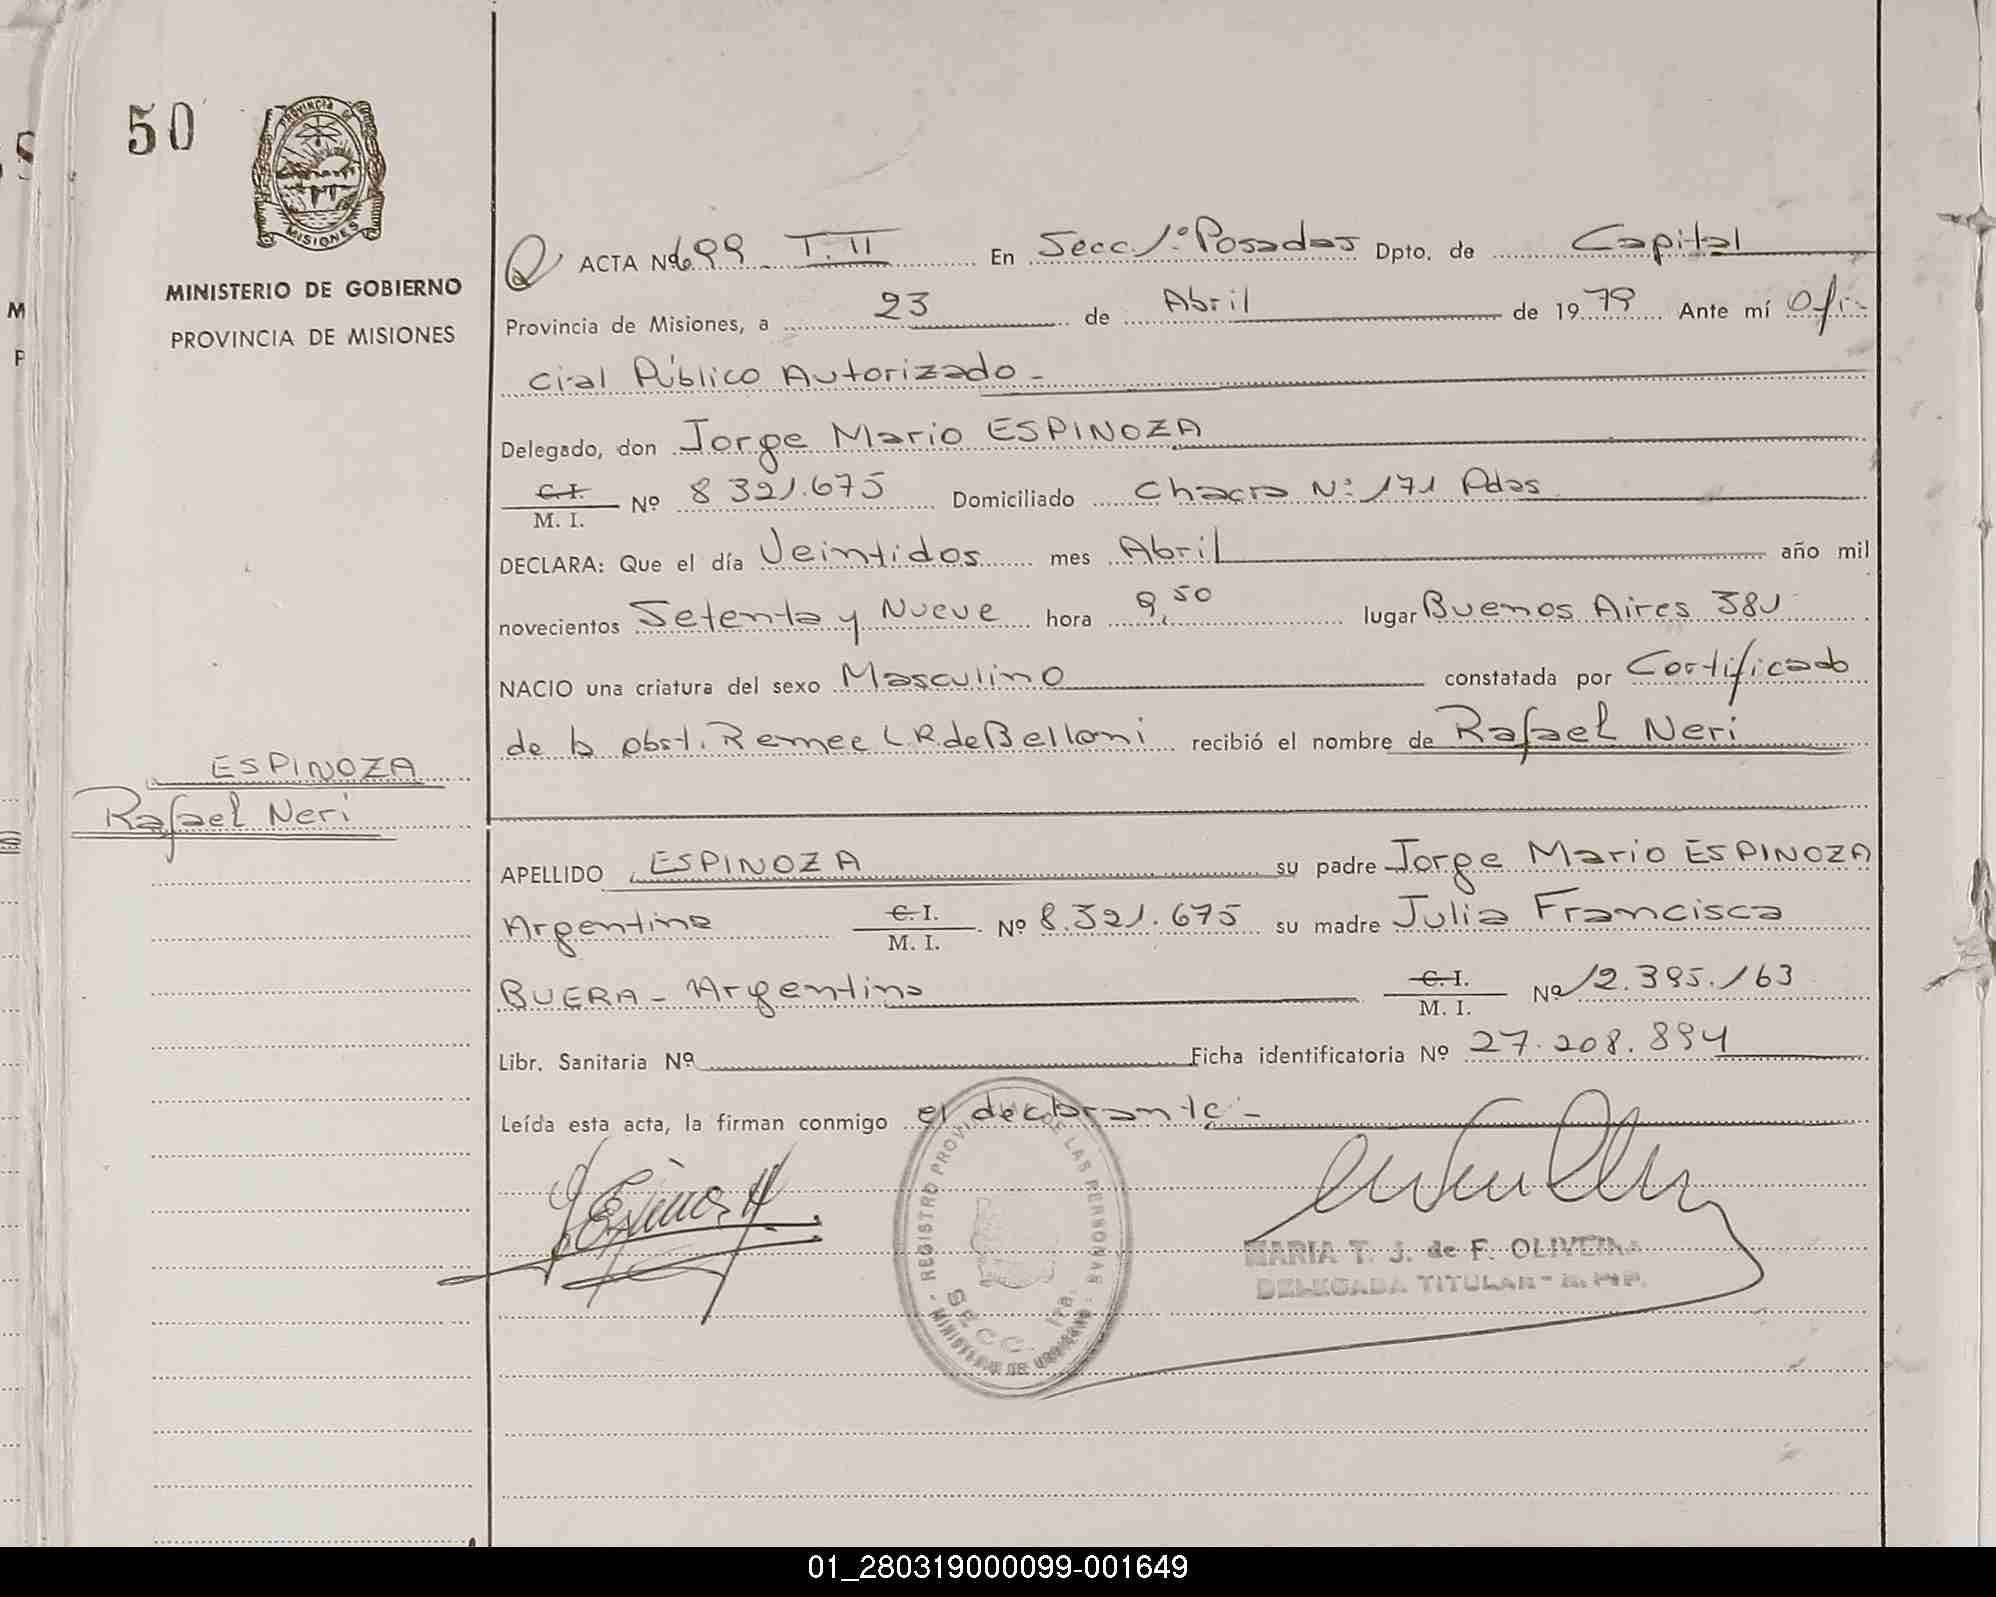 50
PROVINCIA DE
MISIONES
MINISTERIO DE GOBIERNO
PROVINCIA DE MISIONES
ACTA Nº 699 T. II En Secc. 1º Posadas Dpto. de Capital
Provincia de Misiones, a 23 de Abril de 1979 Ante mí Ofi-
cial Público Autorizado -
Delegado, don Jorge Mario ESPINOZA
C. I.
M. I. Nº 8321.675 Domiciliado Chacra Nº 171 Pdas
DECLARA: Que el día Veintidos mes Abril año mil
novecientos Setenta y Nueve hora 9,50 lugar Buenos Aires 381
NACIO una criatura del sexo Masculino constatada por Certificado
de la obst. Remee L R de Belloni recibió el nombre de Rafael Neri
ESPINOZA
Rafael Neri
APELLIDO ESPINOZA su padre Jorge Mario ESPINOZA
Argentino C. I.
M. I. Nº 8.321.675 su madre Julia Francisca
BUERA - Argentina C. I.
M. I. Nº 12.395.163
Libr. Sanitaria Nº Ficha identificatoria Nº 27.208.894
Leída esta acta, la firman conmigo el declarante -
REGISTRO PROVINCIAL DE LAS PERSONAS
SECC. 1ra.
MINISTERIO DE GOBIERNO
MARIA T. J. de F. OLIVEIRA
DELEGADA TITULAR - R. P. P.
01_280319000099-001649